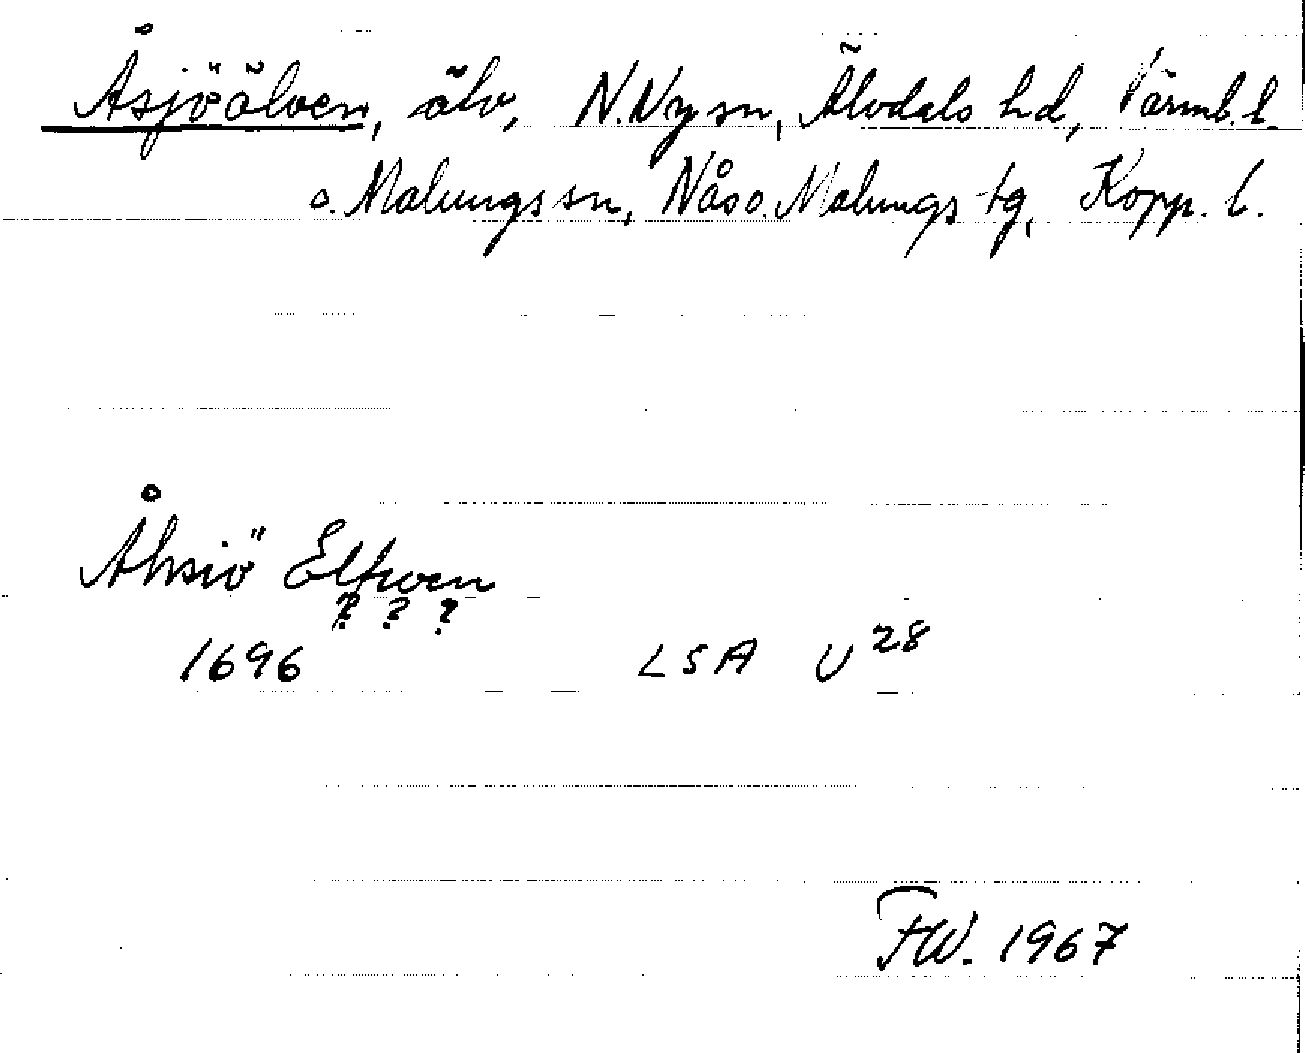 Åsjöälven, älv, N. Ny sn, Älvdals hd, Värmb. l.
o. Malungs sn, Nås o. Malungs tg, Kopp. l.
Åhsiö Elfwen
? ? ?
1696 LSA U28
FW. 1967